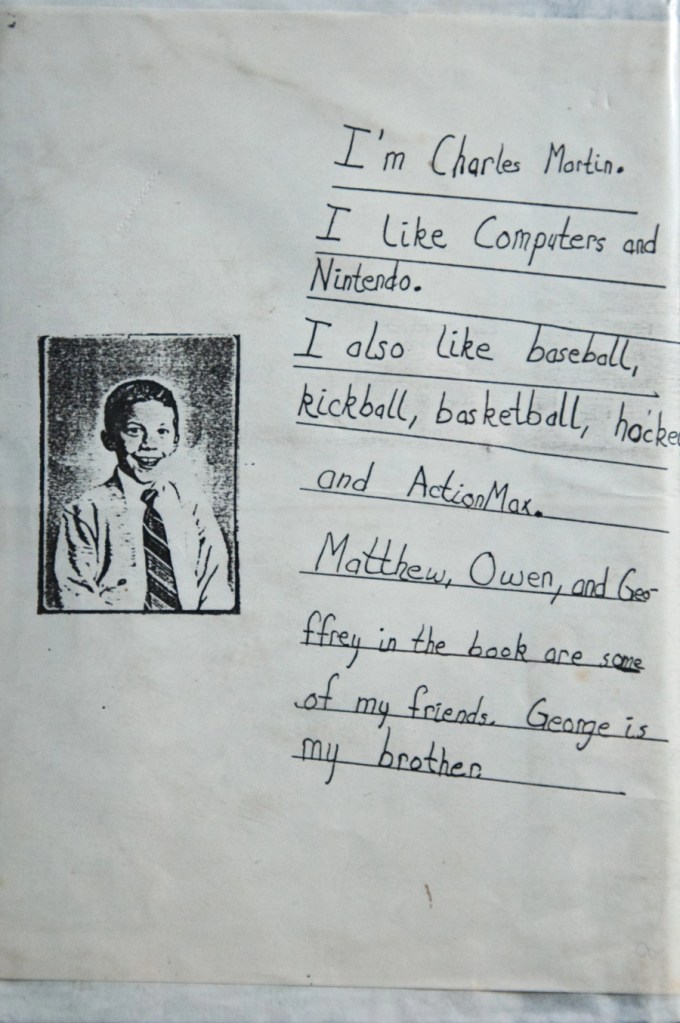 I'm Charles Martin.
I like Computers and
Nintendo.
I also like baseball,
kickball, basketball, hocke
and ActionMax.
Matthew, Owen, and Geo-
ffrey in the book are some
of my friends. George is
my brother.